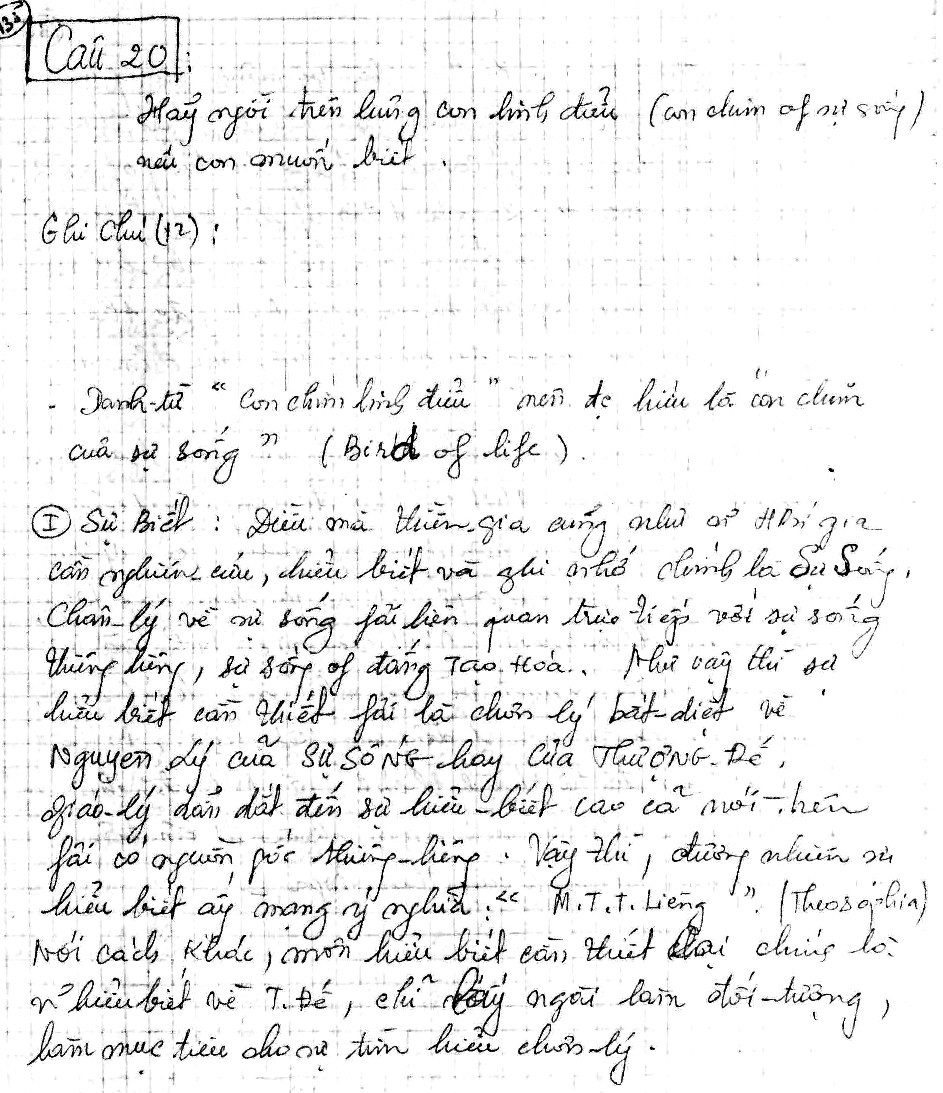 135
Câu 20 :
Hãy ngồi trên lưng con linh điểu (con chim of sự sống)
nếu con muốn biết.
Ghi chú (12) :
- Danh-từ “ con chim linh điểu ” nên đc hiểu là “ con chim
của sự sống ” ( Bird of life ).
I Sự Biết : Điều mà thiền-gia cũng như
cần nghiên cứu, hiểu biết và ghi nhớ chính là Sự Sống.
Chân-lý về sự sống fải liên quan trực tiếp với sự sống
thiêng liêng, sự sống of đấng Tạo Hóa. Như vậy thì sự
hiểu biết cần thiết fải là chơn lý bất-diệt về
Nguyên Lý của SỰ SỐNG hay Của THƯỢNG-ĐẾ.
Giáo-lý dẫn dắt đến sự hiểu-biết cao cả nói trên
fải có nguồn gốc thiêng-liêng. Vậy thì, đương nhiên sự
hiểu biết ấy mang ý nghĩa : “ M.T.T. Liêng ”. (Theosophia)
Nói cách khác, môn hiểu biết cần thiết chính là
hiểu biết về T. Đế, chỉ lấy ngài làm đối-tượng,
làm mục tiêu cho sự tìm hiểu chơn-lý.